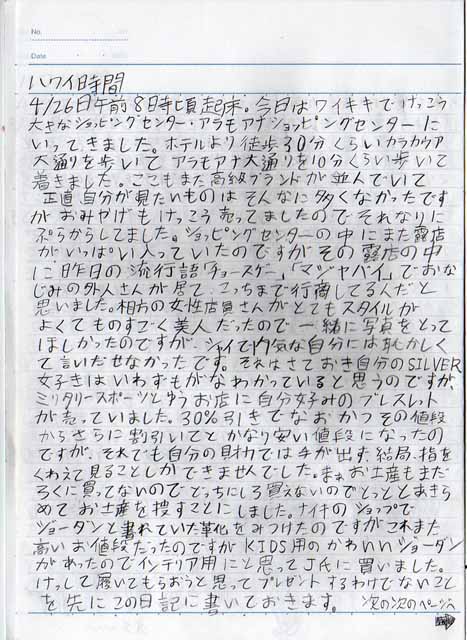 No.
Date
ハワイ時間
4/26日午前8時頃起床。今日はワイキキでけっこう
大きなショッピングセンター・アラモアナショッピングセンターに
いってきました。ホテルより徒歩30分くらいカラカウア
大通りを歩いてアラモアナ大通りを10分くらい歩いて
着きました。ここもまた高級ブランドが並んでいて
正直自分が見たいものはそんなに多くなかったです
がおみやげもけっこう売ってましたのでそれなりに
ぷらからしてました。ショッピングセンターの中にまた露店
がいっぱい入っていたのですがその露店の中
に昨日の流行語「チョースゲー」「マジヤバイ」でおな
じみの外人さんが居て、こっちまで行商してるんだと
思いました。相方の女性店員さんがとてもスタイルが
よくてものすごく美人だったので一緒に写真をとって
ほしかったのですが、シャイで内気な自分には恥かしく
て言いだせなかったです。それはさておき自分のSILVER
女子きはいわずもがなわかっていると思うのですが、
ミリタリースポーツとゆうお店に自分好みのブレスレット
が売っていました。30%引きでなおかつその値段
からさらに割引いてとかなり安い値段になったの
ですが、それでも自分の財力では手が出ず結局、指を
くわえて見ることしかできませんでした。まぁお土産もまだ
ろくに買ってないのでどっちにしろ買えないのでとっととあきら
めてお土産を捜すことにしました。ナイキのショップで
ジョーダンと書れていた革化をみつけたのですがこれまた
高いお値段だったのですがKIDS用のかわいいジョーダン
があったのでインテリア用にと思ってJ氏に買いました。
けっして履いてもらおうと思ってプレゼントするわけでないこと
を先にこの日記に書いておきます。 次の次のページへ